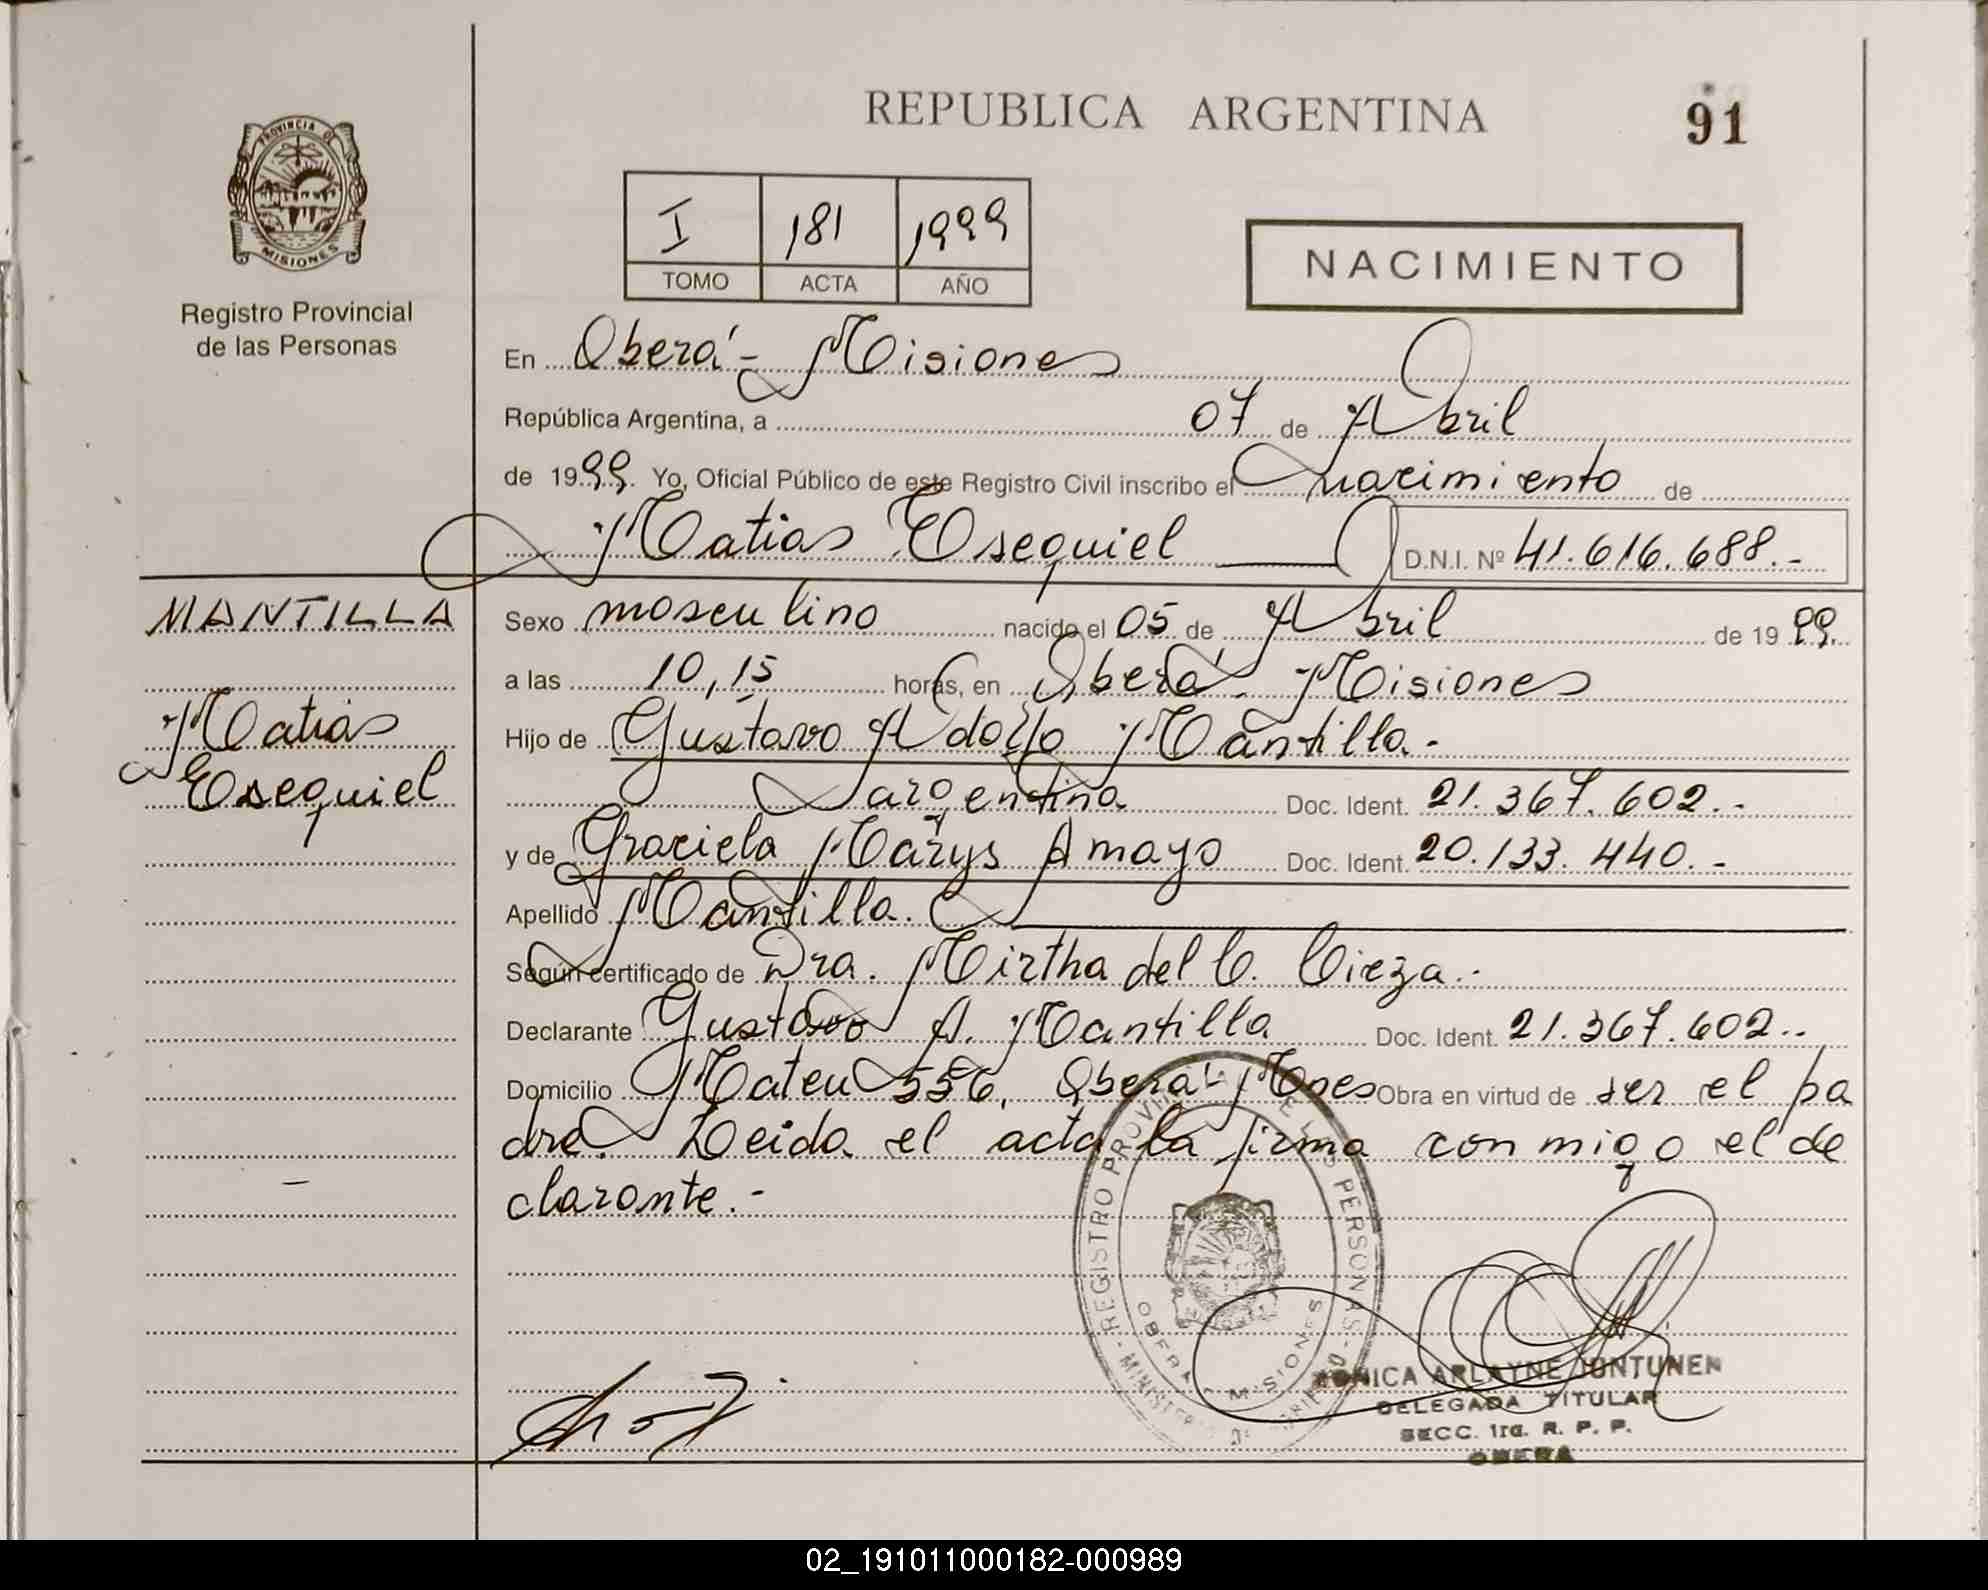 REPUBLICA ARGENTINA
91
PROVINCIA DE
MISIONES
Registro Provincial
de las Personas
I 181 1999
TOMO ACTA AÑO
NACIMIENTO
En Oberá - Misiones
República Argentina, a 07 de Abril
de 1999. Yo, Oficial Público de este Registro Civil inscribo el nacimiento de
Matias Esequiel D.N.I. Nº 41.616.688.-
MANTILLA
Matias
Esequiel
Sexo masculino nacido el 05 de Abril de 1999.
a las 10,15 horas, en Oberá - Misiones
Hijo de Gustavo Adolfo Mantilla.-
argentino Doc. Ident. 21.367.602.-
y de Graciela Marys Amayo Doc. Ident. 20.133.440.-
Apellido Mantilla.
Según certificado de Dra. Mirtha del C. Cieza.-
Declarante Gustavo A. Mantilla Doc. Ident. 21.367.602.-
Domicilio Mateu 556, Oberá - Mnes Obra en virtud de ser el pa
dre. Leida el acta la firma conmigo el de
clarante.-
REGISTRO PROVINCIAL DE LAS PERSONAS
OBERA MISIONES
ARLAYNE
DELEGADA TITULAR
SECC. 1ra. R. P. P.
OBERA
02_191011000182-000989